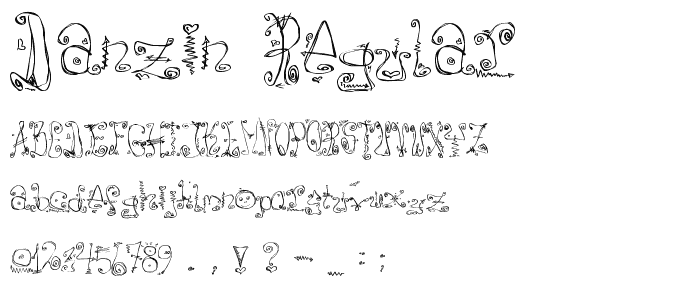 Danzin Regular
ABCDEFGHIJKLMNOPQRSTUVWXYZ
abcdefghijklmnopqrstuvwxyz
0123456789 . , ! ? - _ : ;